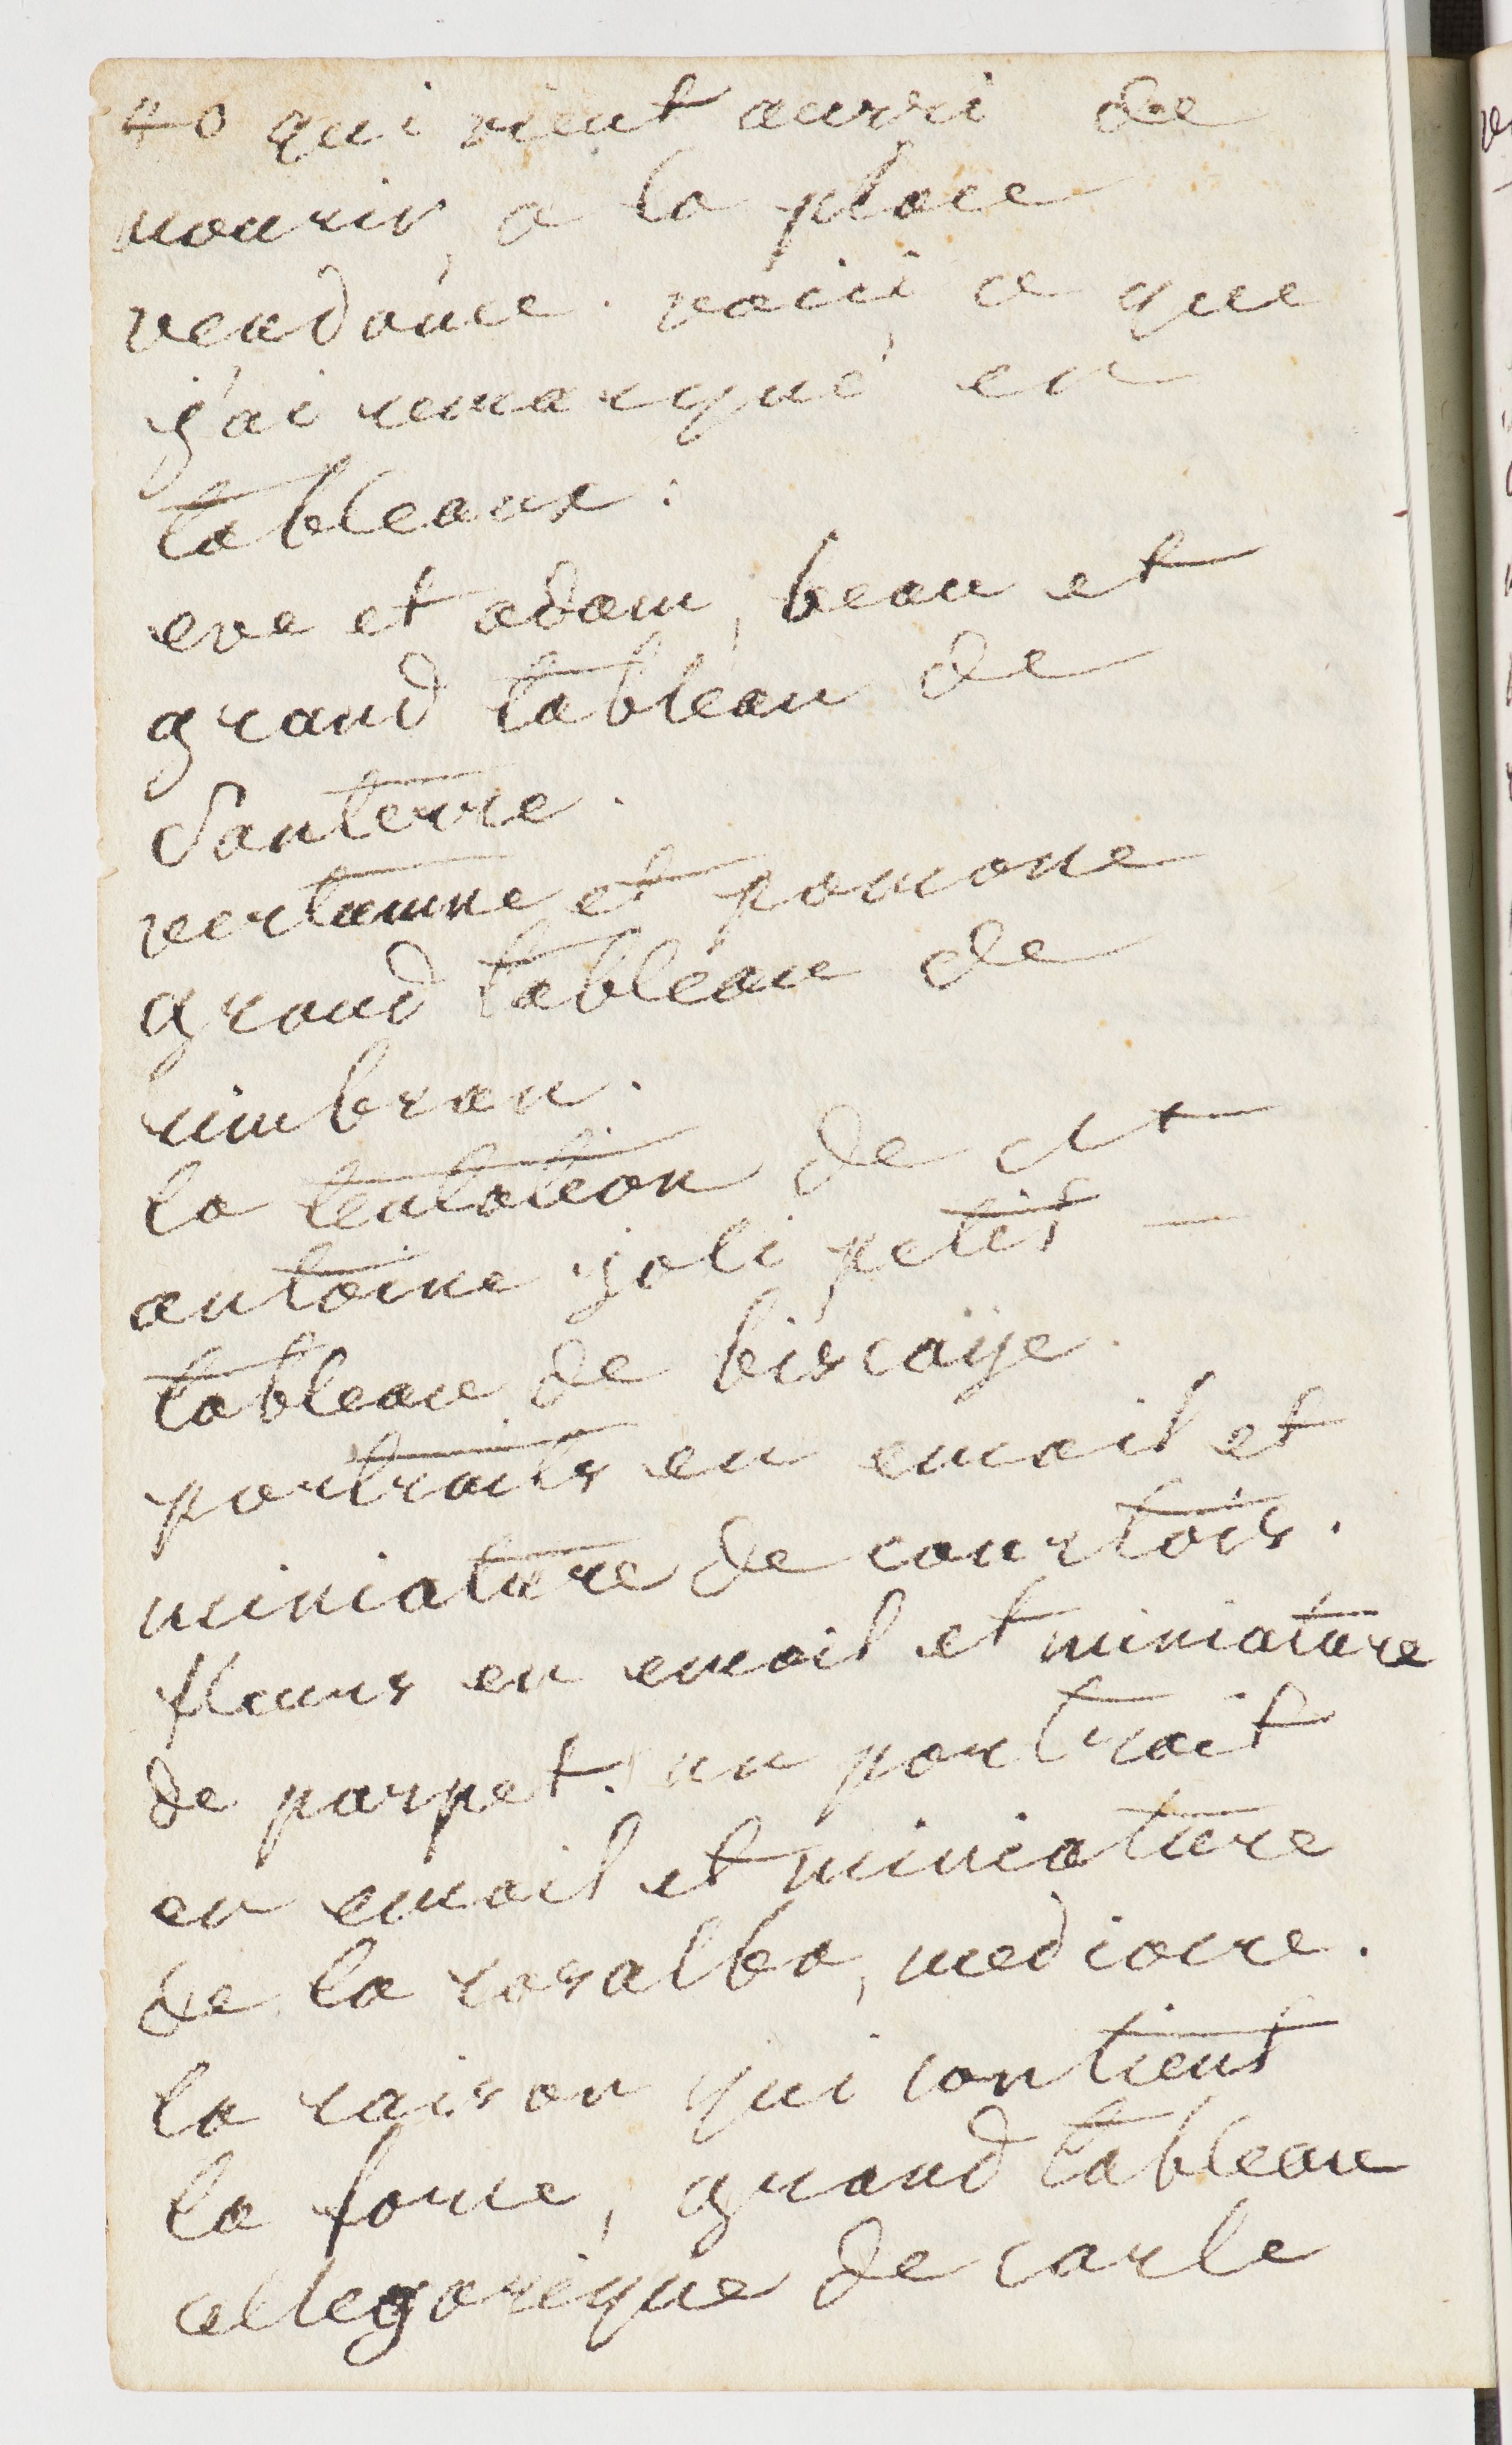 40 qui vient aussi de
mourir, a la place
vendôme. voici, ce que
j'ai remarqué en
tableaux :
eve et adam, beau et
grand tableau de
Santerre.
vertumne et pomone
grand tableau de
rimbran.
la tentation de st
antoine joli petit —
tableau de biscaÿe.
portraits en email et
miniature de courtois.
fleurs en email et miniature
de parpet. un portrait
en email et miniature
de la rosalba, mediocre.
la raison qui contient
la force, grand tableau
allegorique de carle